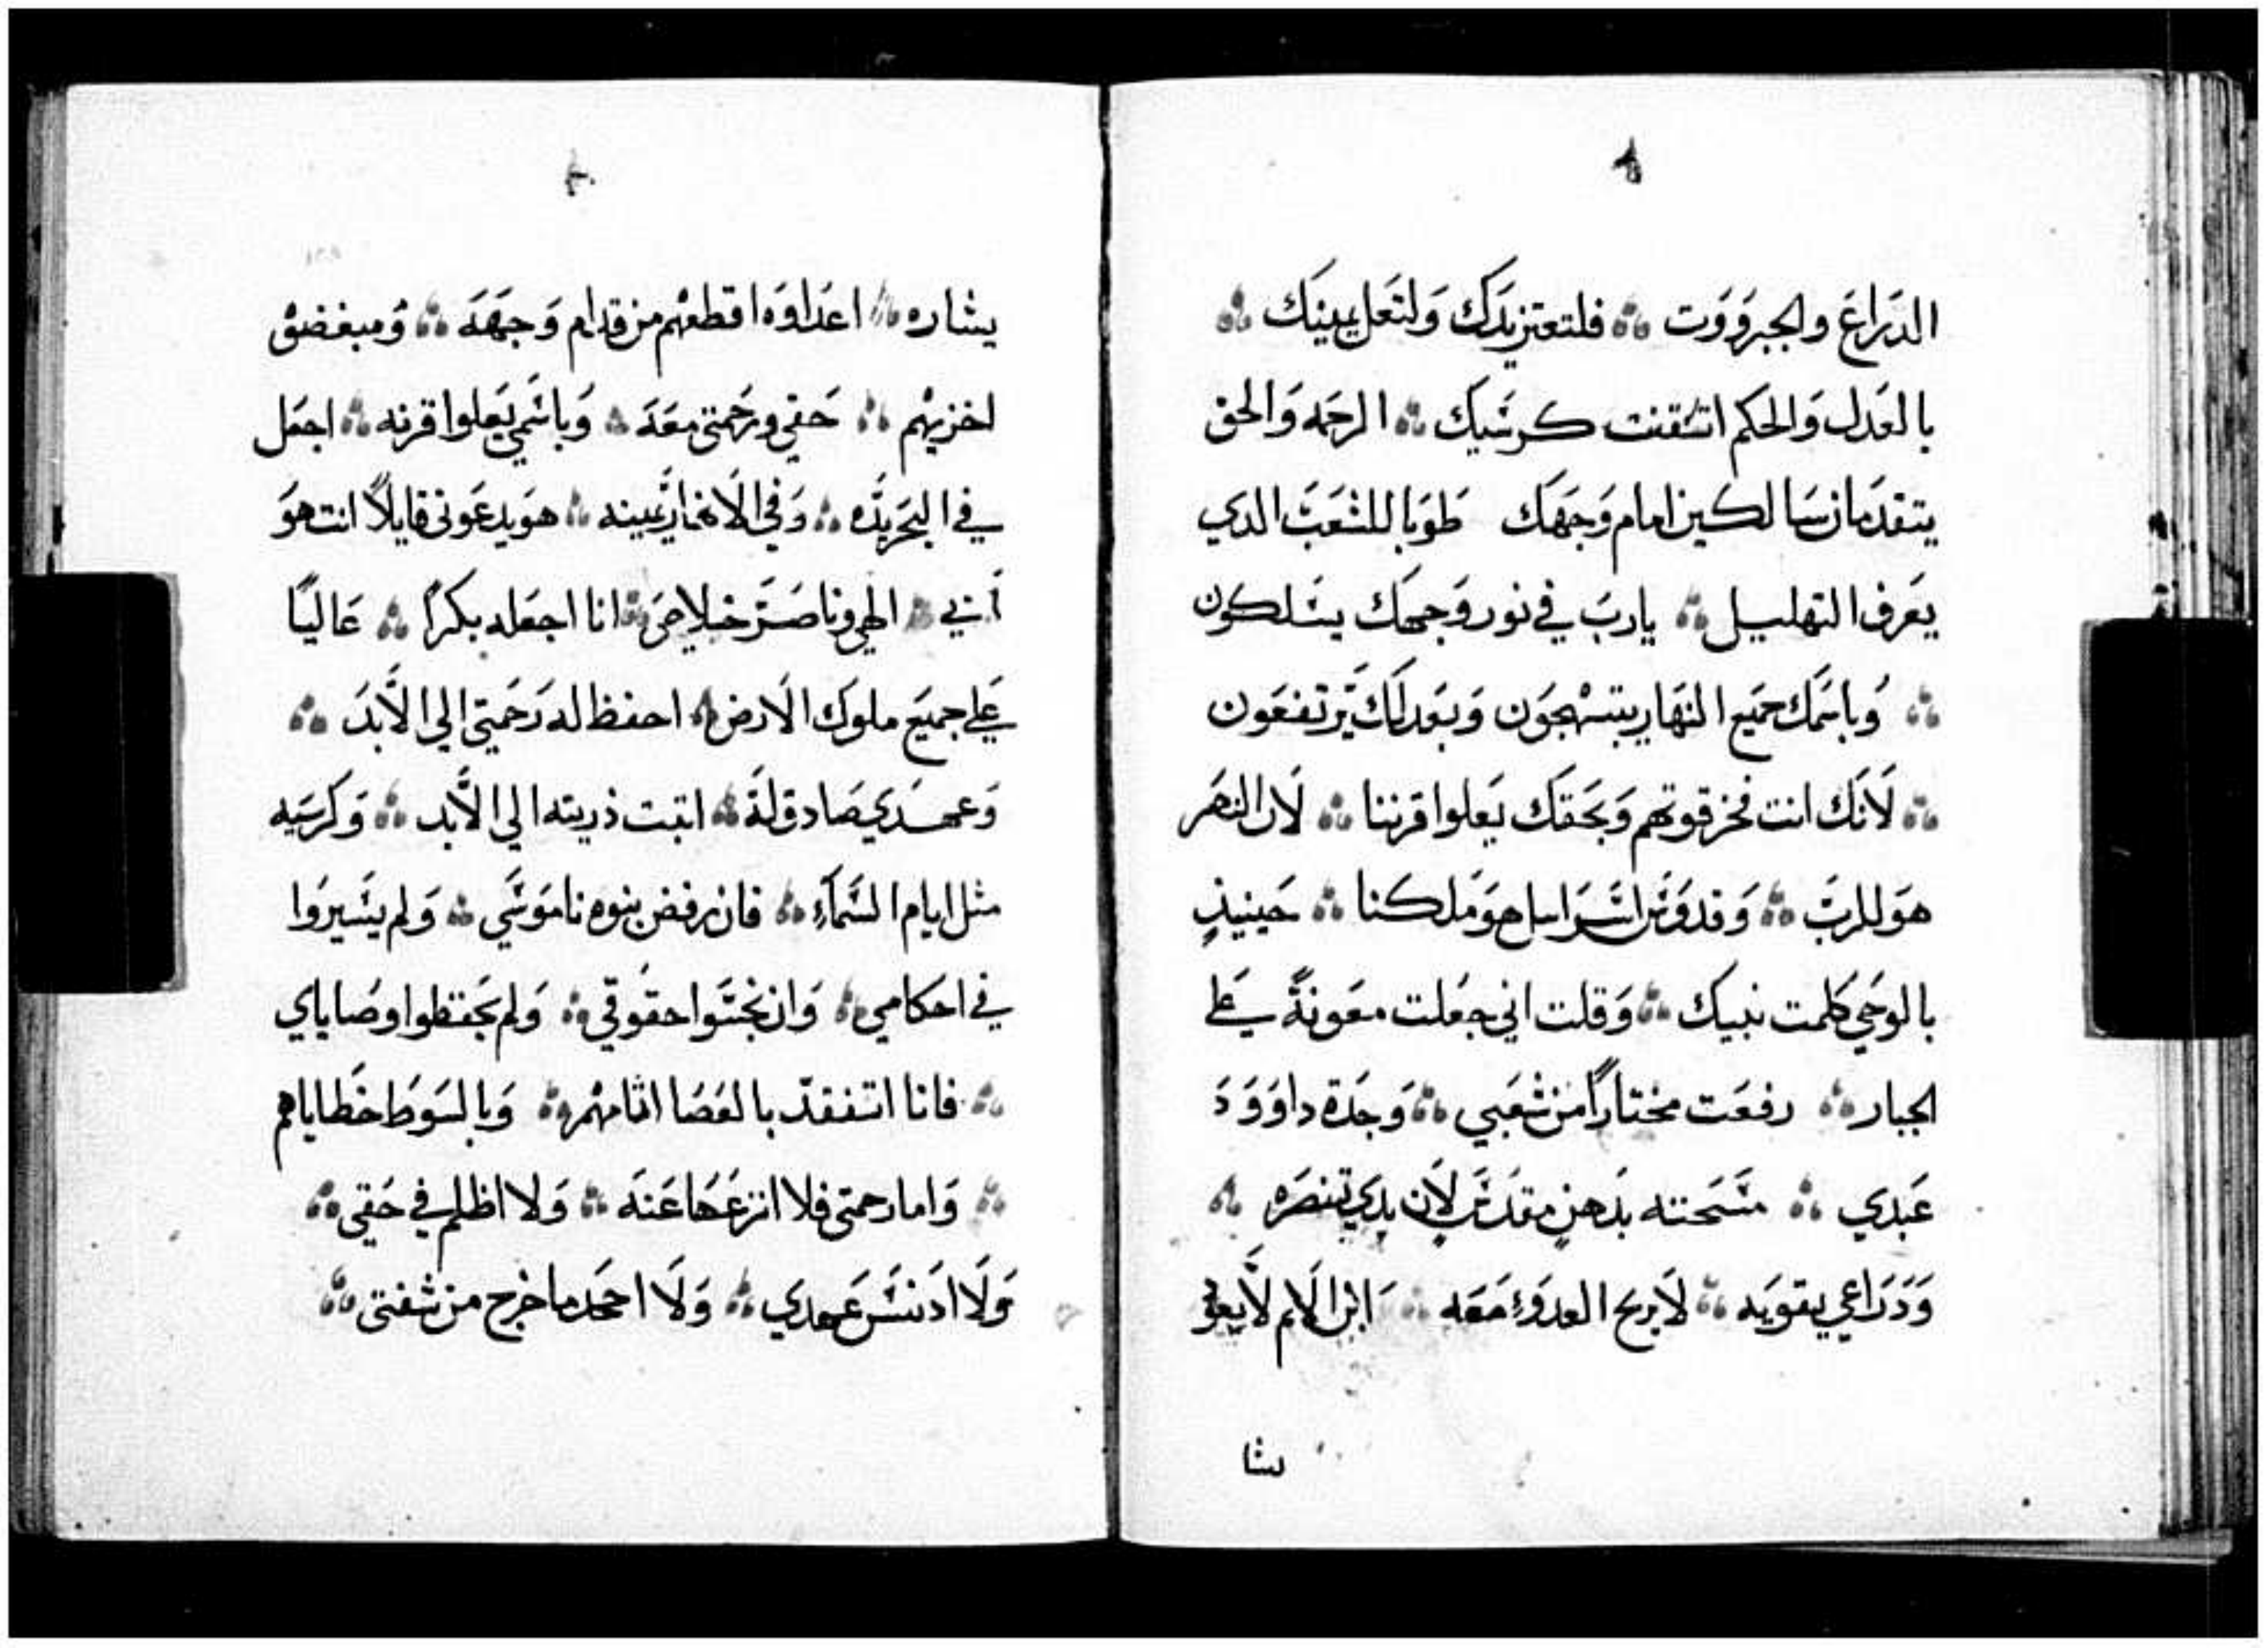 الدراع والجبرووت فلتعتز يدك ولتعل يمينك
بالعدل والحكم اتتقنت كرسيك الرحمه والحق
يتقدمان سالكين امام وجهك طوبا للشعب الدي
يعرف التهليل يارب في نور وجهك يسلكون
وباسمك جميع النهار يبتهجون وبعدلك يرتفعون
لانك انت فخر قوتهم وبحقك يعلوا قرننا لان النصر
هو للرب وقدوس اسراييل هو ملكنا حينيذ
بالوحي كلمت نبيك وقلت اني جعلت معونة علي
الجبار رفعت مختارا من شعبي وجدة داوود
عبدي مسحته بدهن مقدس لان يدي تنصره
ودراعي يقويه لا يربح العدو معه ابن الاثم لا يعوق
يشا
يشاره اعداوه اقطعهم من قدام وجهه ومبغضوه
اخزيهم حقي ورحمتي معه وباسمي يعلوا قرنه اجعل
في البحر يده وفي الانهار يمينه هو يدعوني قايلا انت هو
ابي الهي وناصر خلاصي انا اجعله بكرا عاليا
علي جميع ملوك الارض احفظ له رحمتي الي الابد
وعهدي صادق له اتبت ذريته الي الابد وكرسيه
مثل ايام السماء فان رفض بنوه ناموسي ولم يسيروا
في احكامي وان نجسوا حقوقي ولم يحفظوا وصاياي
فانا اتفقد بالعصا اثامهم وبالسوط خطاياهم
واما رحمتي فلا انزعها عنه ولا اظلم في حقي
ولا ادنس عهدي ولا احجد ما خرج من شفتي